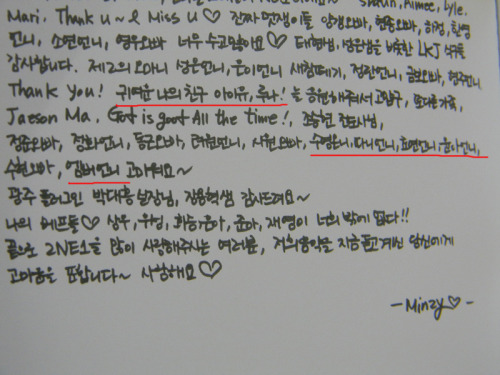 Shaun, Aimee, Lyle,
Mari, Thank u~ & Miss U♡ 진짜
언니, 소연언니, 영우오빠 너무 수고많아요♡ 태현님, 성은 LKJ 식구들
감사합니다. 제2의 오마니 성은언니, 은이언니 새침떼기, 정란언니, 금보오빠, 현주언니
Thank you! 귀여운 나의 친구 아이유, 루나! 늘 응원해줘서 고맙구, 또다른가족,
Jaeson Ma, God is good All the time!, 조승현 전도사님,
정준오빠, 정화언니, 동근오빠, 려원언니, 시원오빠, 수영언니, 다나언니, 효연언니, 윤아언니,
수현오빠, 엠버언니 고마워요~
광주 플러그인 박대웅실장님, 장용혁쌤 감사드려요~
나의 베프들♡ 상우, 우형, 화승유아, 준아, 재영이 너희 밖에 없다!!
끝으로 2NE1을 많이 사랑해주시는 여러분, 저희음악을 지금 듣고계신 당신에게
고마움을 표합니다~ 사랑해요♡
-Minzy♡-